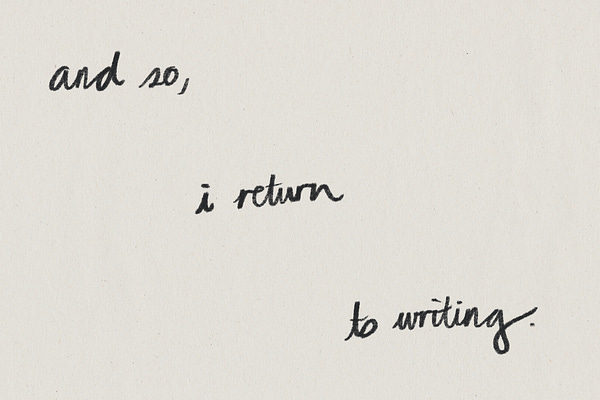 and so,
i return
to writing.